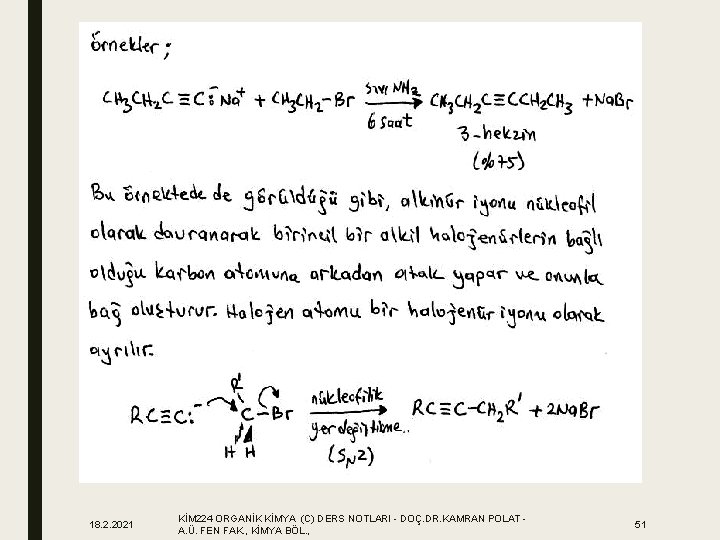 örnekler ;
CH3CH2C≡C:⁻Na⁺ + CH3CH2-Br sıvı NH3 6 saat CH3CH2C≡CCH2CH3 + NaBr
3-hekzin
(%75)
Bu örnektede de görüldüğü gibi, alkinür iyonu nükleofil
olarak davranarak birincil bir alkil halojenürlerin bağlı
olduğu karbon atomuna arkadan atak yapar ve onunla
bağ oluşturur. Halojen atomu bir halojenür iyonu olarak
ayrılır.
R'
RC≡C:⁻ C-Br nükleofilik yerdeğiştirme.. RC≡C-CH2R' + 2NaBr
H H (SN2)
18.2.2021
KİM224 ORGANİK KİMYA (C) DERS NOTLARI - DOÇ.DR.KAMRAN POLAT -
A.Ü. FEN FAK., KİMYA BÖL.,
51